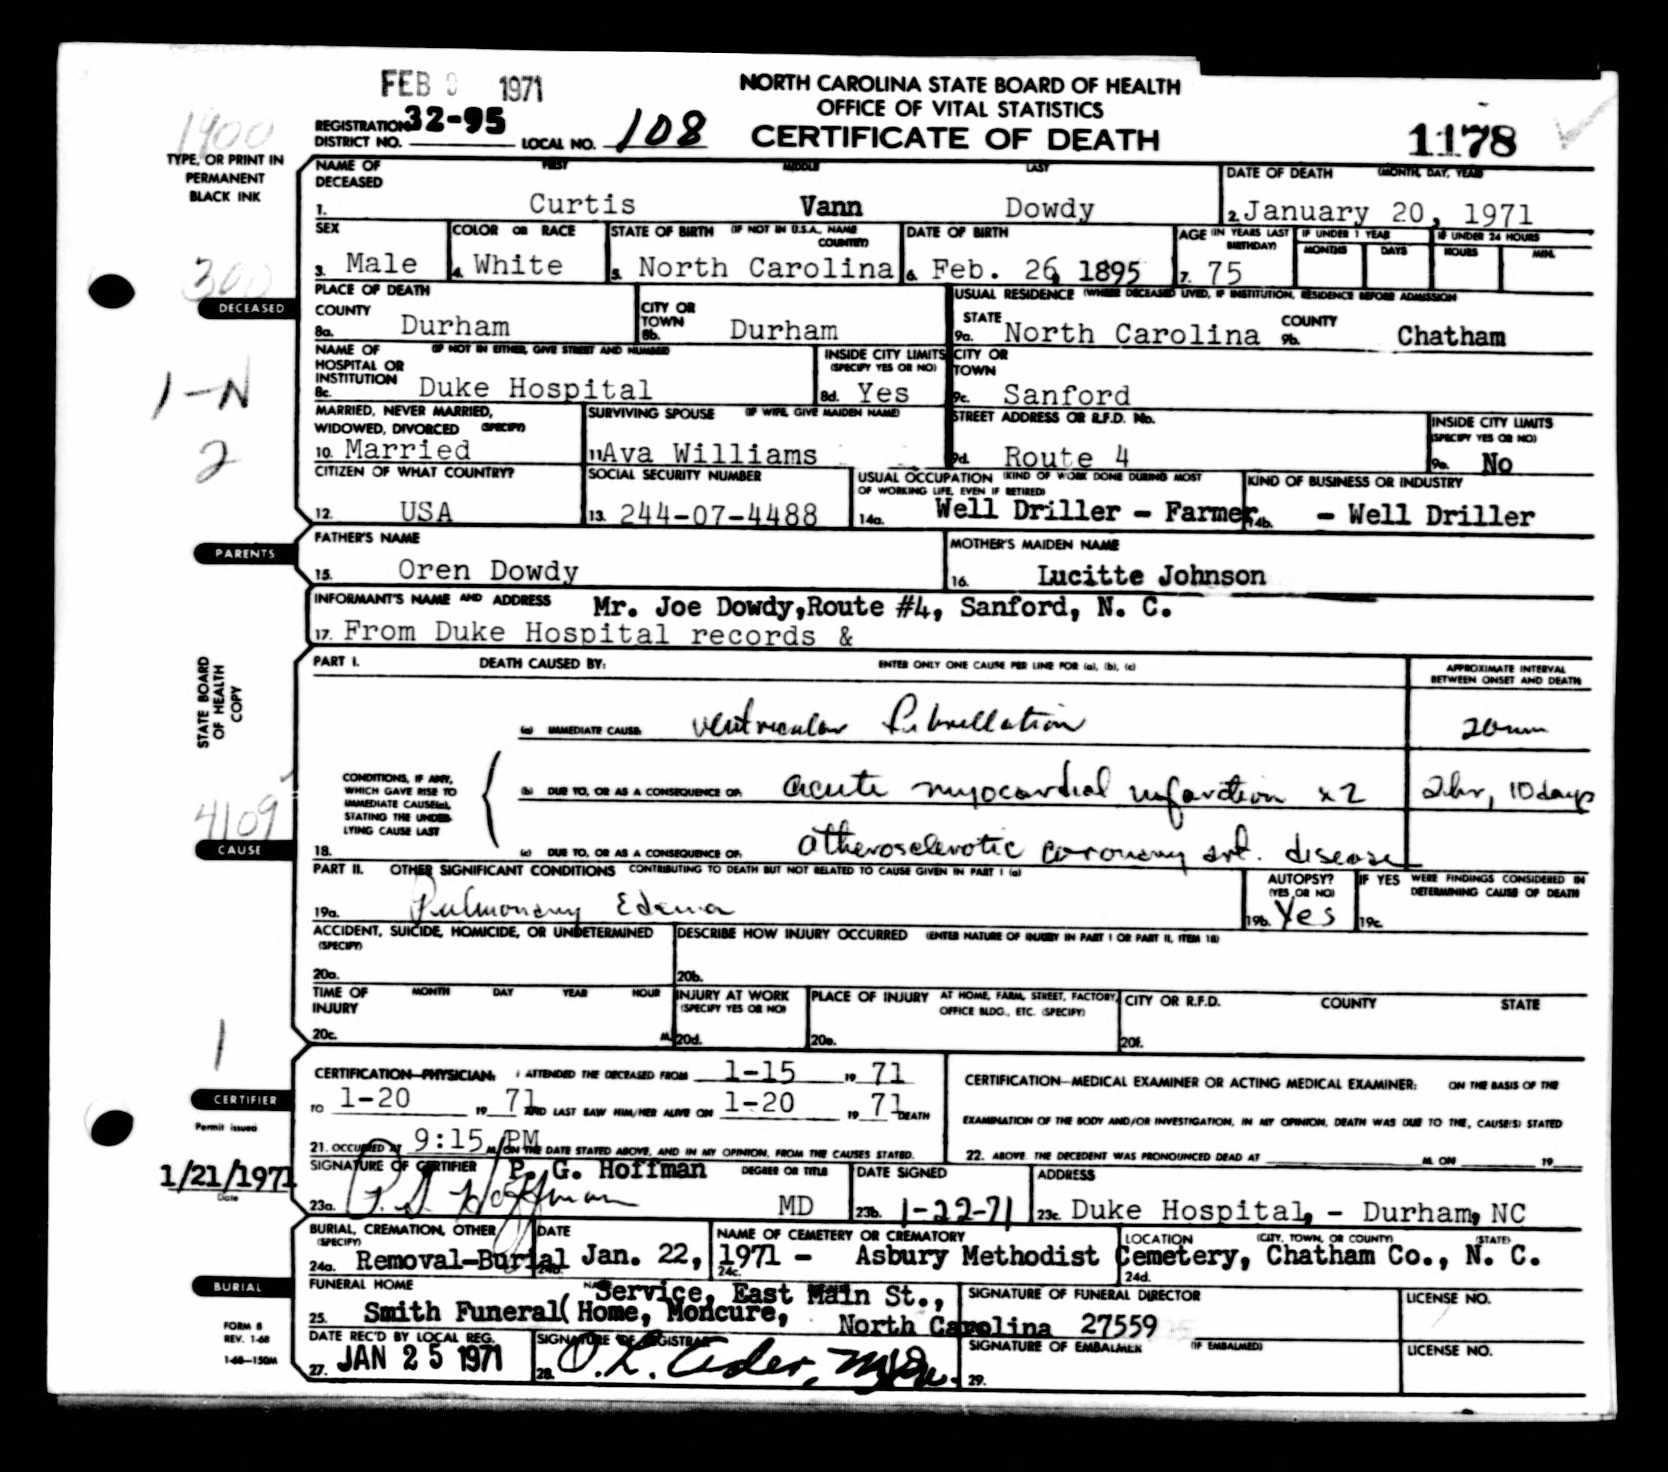 FEB 1971
NORTH CAROLINA STATE BOARD OF HEALTH
OFFICE OF VITAL STATISTICS
CERTIFICATE OF DEATH
1900
REGISTRATION DISTRICT NO. 32-95 LOCAL NO. 108
1178
TYPE, OR PRINT IN
PERMANENT
BLACK INK
NAME OF DECEASED FIRST MIDDLE LAST
1. Curtis Vann Dowdy
DATE OF DEATH (MONTH, DAY, YEAR)
2. January 20, 1971
SEX
3. Male
COLOR OR RACE
4. White
STATE OF BIRTH (IF NOT IN U.S.A., NAME COUNTRY)
5. North Carolina
DATE OF BIRTH
6. Feb. 26, 1895
AGE (IN YEARS LAST BIRTHDAY)
7. 75
IF UNDER 1 YEAR
MONTHS DAYS
IF UNDER 24 HOURS
HOURS MIN.
300
DECEASED
PLACE OF DEATH
COUNTY
8a. Durham
CITY OR TOWN
8b. Durham
USUAL RESIDENCE (WHERE DECEASED LIVED, IF INSTITUTION, RESIDENCE BEFORE ADMISSION
STATE
9a. North Carolina
COUNTY
9b. Chatham
NAME OF HOSPITAL OR INSTITUTION (IF NOT IN EITHER, GIVE STREET AND NUMBER)
8c. Duke Hospital
INSIDE CITY LIMITS (SPECIFY YES OR NO)
8d. Yes
CITY OR TOWN
9c. Sanford
1-N
2
MARRIED, NEVER MARRIED, WIDOWED, DIVORCED (SPECIFY)
10. Married
SURVIVING SPOUSE (IF WIFE, GIVE MAIDEN NAME)
11. Ava Williams
STREET ADDRESS OR R.F.D. No.
9d. Route 4
INSIDE CITY LIMITS (SPECIFY YES OR NO)
9e. No
CITIZEN OF WHAT COUNTRY?
12. USA
SOCIAL SECURITY NUMBER
13. 244-07-4488
USUAL OCCUPATION (KIND OF WORK DONE DURING MOST OF WORKING LIFE, EVEN IF RETIRED)
14a. Well Driller - Farmer
KIND OF BUSINESS OR INDUSTRY
14b. - Well Driller
PARENTS
FATHER'S NAME
15. Oren Dowdy
MOTHER'S MAIDEN NAME
16. Lucitte Johnson
INFORMANT'S NAME AND ADDRESS Mr. Joe Dowdy, Route #4, Sanford, N. C.
17. From Duke Hospital records &
STATE BOARD
OF HEALTH
COPY
PART I. DEATH CAUSED BY: ENTER ONLY ONE CAUSE PER LINE FOR (a), (b), (c)
APPROXIMATE INTERVAL BETWEEN ONSET AND DEATH
(a) IMMEDIATE CAUSE: ventricular fibrillation 20 min
CONDITIONS, IF ANY, WHICH GAVE RISE TO IMMEDIATE CAUSE(a), STATING THE UNDERLYING CAUSE LAST
(b) DUE TO, OR AS A CONSEQUENCE OF: acute myocardial infarction x2 2 hr, 10 days
4109
CAUSE
18. (c) DUE TO, OR AS A CONSEQUENCE OF: atherosclerotic coronary art. disease
PART II. OTHER SIGNIFICANT CONDITIONS CONTRIBUTING TO DEATH BUT NOT RELATED TO CAUSE GIVEN IN PART I (a)
19a. Pulmonary Edema
AUTOPSY? (YES OR NO)
19b. Yes
IF YES WERE FINDINGS CONSIDERED IN DETERMINING CAUSE OF DEATH
19c.
ACCIDENT, SUICIDE, HOMICIDE, OR UNDETERMINED (SPECIFY)
20a.
DESCRIBE HOW INJURY OCCURRED (ENTER NATURE OF INJURY IN PART I OR PART II, ITEM 18)
20b.
TIME OF INJURY MONTH DAY YEAR HOUR
20c. M.
INJURY AT WORK (SPECIFY YES OR NO)
20d.
PLACE OF INJURY AT HOME, FARM, STREET, FACTORY, OFFICE BLDG., ETC. (SPECIFY)
20e.
CITY OR R.F.D. COUNTY STATE
20f.
1
CERTIFIER
CERTIFICATION-PHYSICIAN: I ATTENDED THE DECEASED FROM 1-15 19 71
TO 1-20 19 71 AND LAST SAW HIM/HER ALIVE ON 1-20 19 71 DEATH
21. OCCURRED AT 9:15 PM M. ON THE DATE STATED ABOVE, AND IN MY OPINION, FROM THE CAUSES STATED.
CERTIFICATION-MEDICAL EXAMINER OR ACTING MEDICAL EXAMINER: ON THE BASIS OF THE
EXAMINATION OF THE BODY AND/OR INVESTIGATION, IN MY OPINION, DEATH WAS DUE TO THE, CAUSE(S) STATED
22. ABOVE. THE DECEDENT WAS PRONOUNCED DEAD AT M. ON 19
Permit issued
1/21/1971
Date
SIGNATURE OF CERTIFIER P. G. Hoffman DEGREE OR TITLE
23a. P. G. Hoffman MD
DATE SIGNED
23b. 1-22-71
ADDRESS
23c. Duke Hospital, - Durham, NC
BURIAL
BURIAL, CREMATION, OTHER (SPECIFY)
24a. Removal-Burial
DATE
24b. Jan. 22, 1971 -
NAME OF CEMETERY OR CREMATORY
24c. Asbury Methodist Cemetery,
LOCATION (CITY, TOWN, OR COUNTY) (STATE)
24d. Chatham Co., N. C.
FUNERAL HOME Service, East Main St.,
25. Smith Funeral (Home, Moncure, North Carolina 27559
SIGNATURE OF FUNERAL DIRECTOR
LICENSE NO.
FORM 8
REV. 1-68
1-68-150M
DATE REC'D BY LOCAL REG.
27. JAN 25 1971
SIGNATURE OF REGISTRAR
28. O. L. Ader,
SIGNATURE OF EMBALMER (IF EMBALMED)
29.
LICENSE NO.